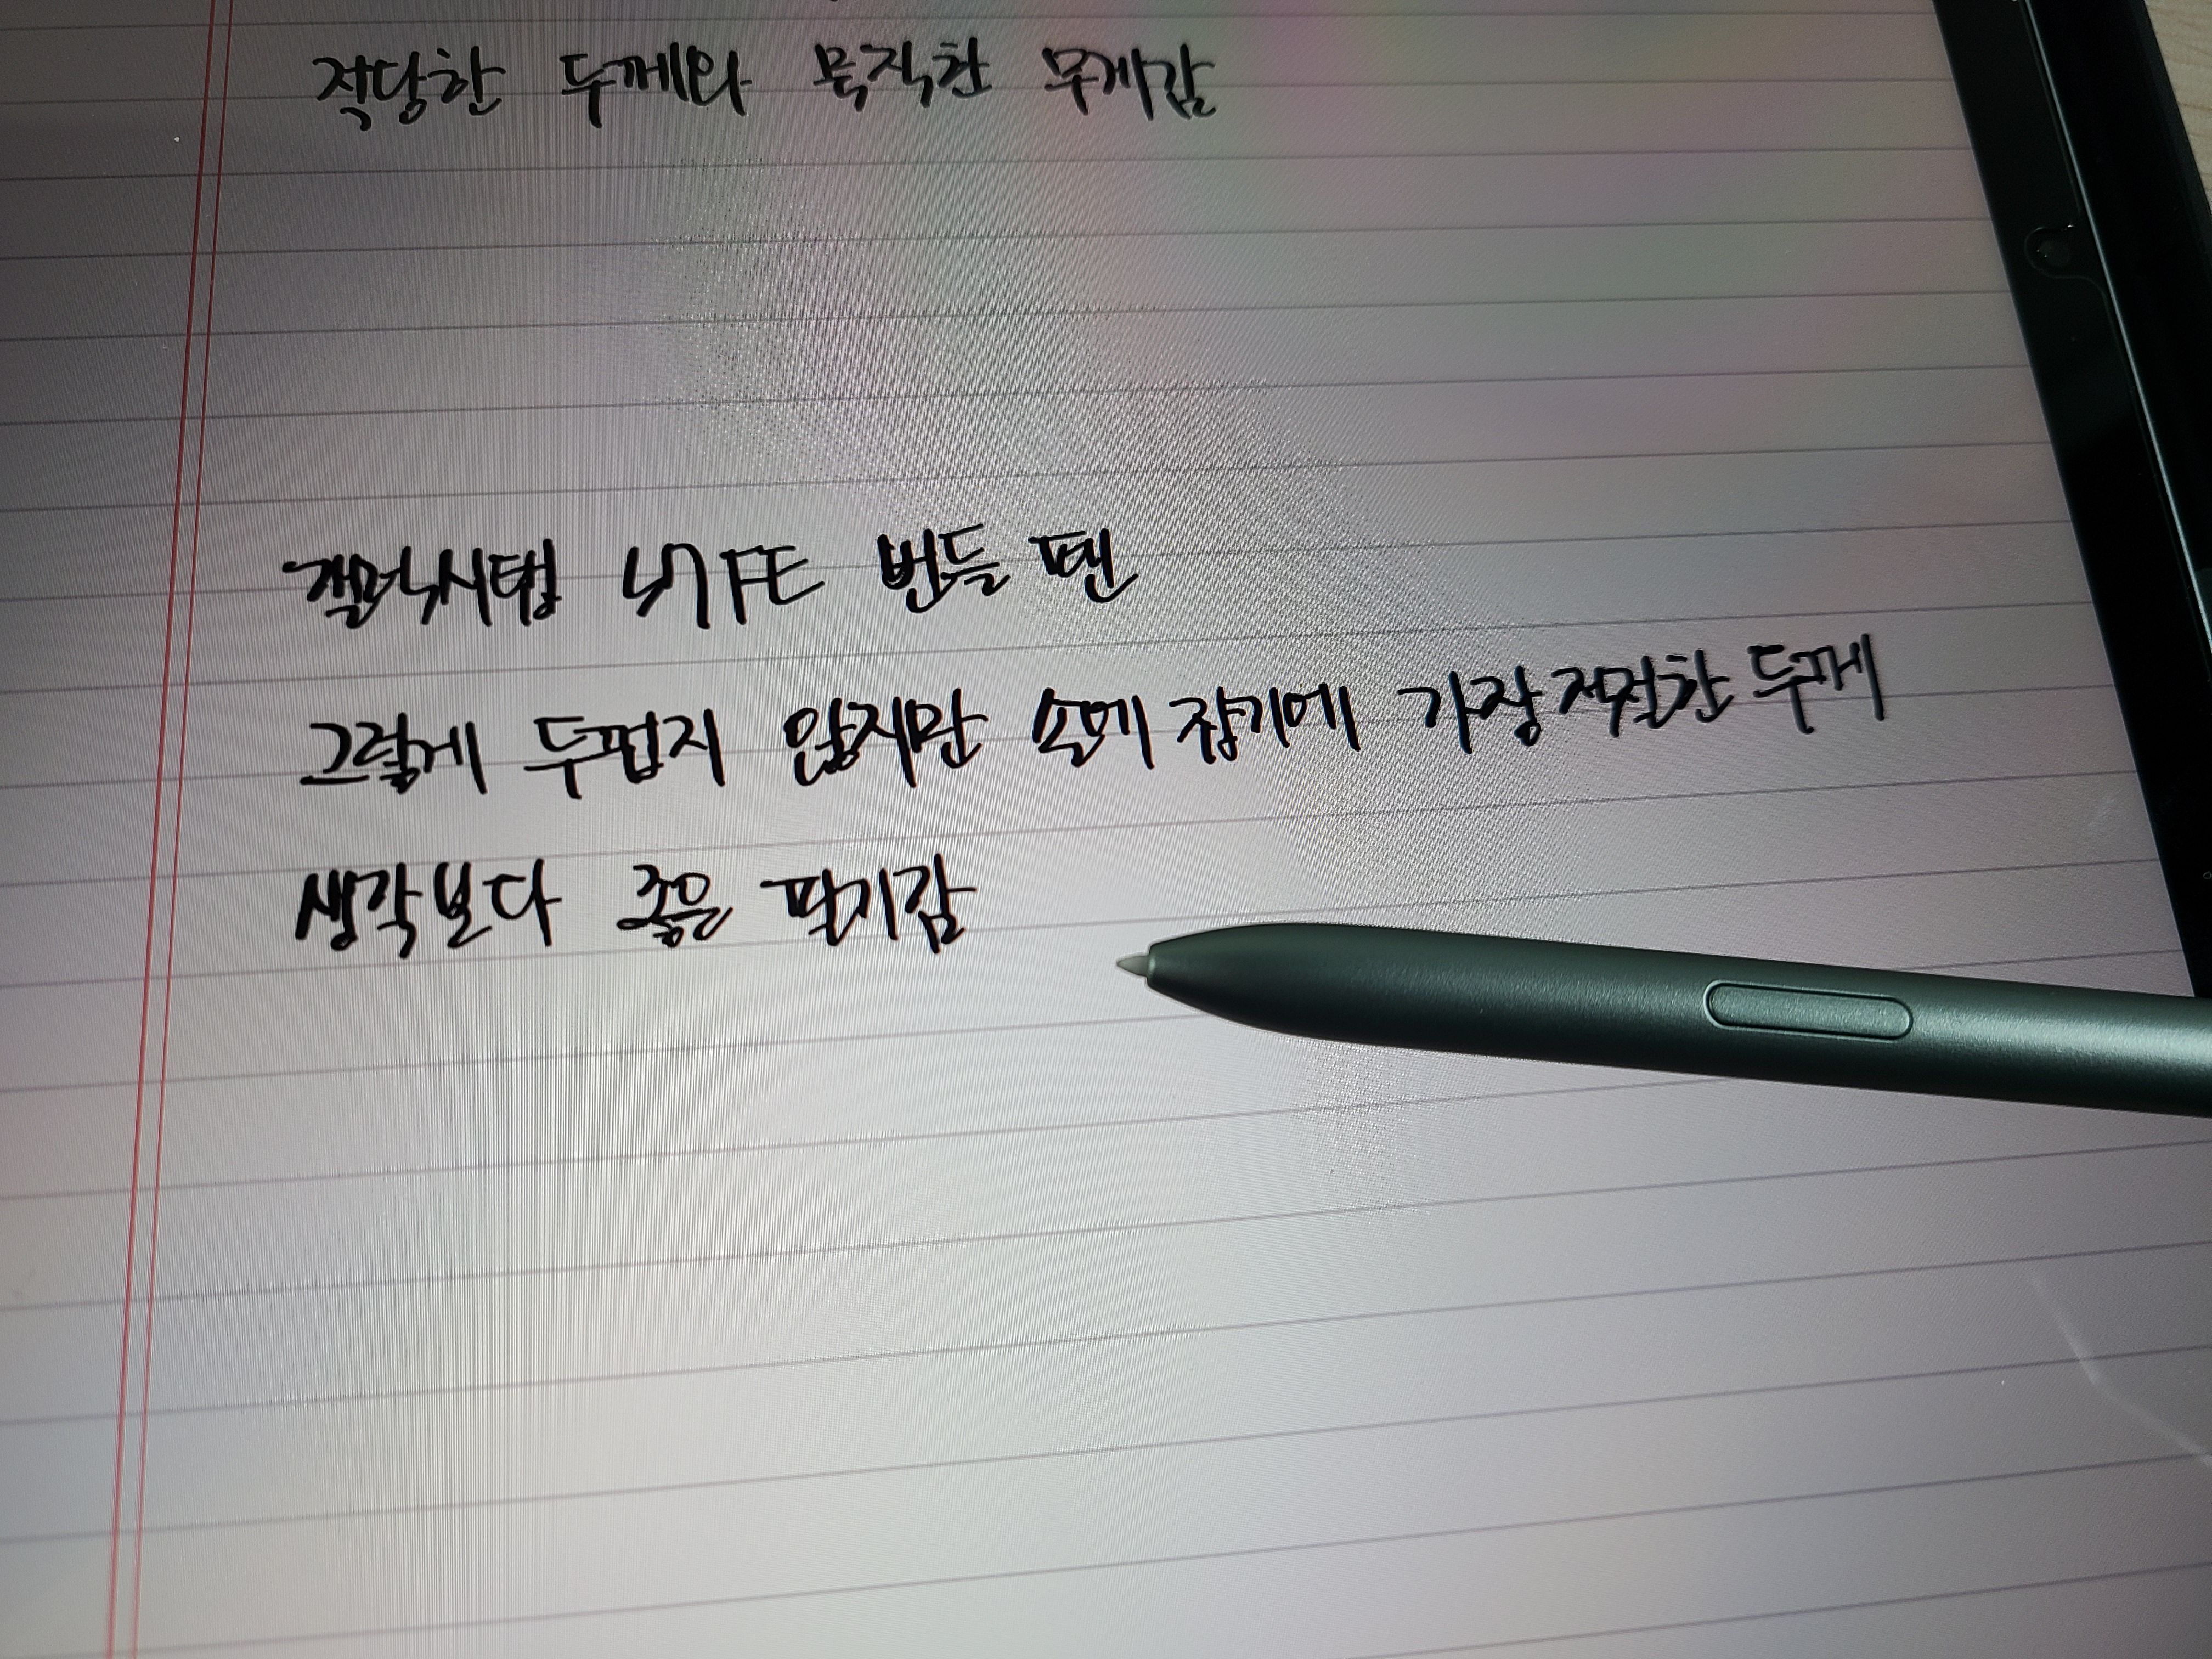 적당한 두께와 묵직한 무게감
갤럭시탭 S7FE 번들 펜
그렇게 두껍지 않지만 손에 잡기에 가장 적절한 두께
생각보다 좋은 필기감